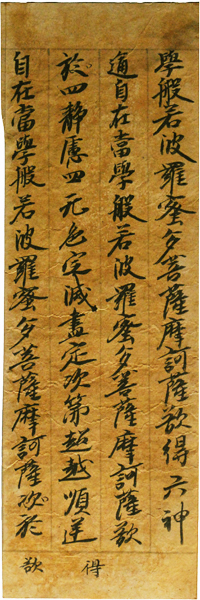 學般若波羅蜜多菩薩摩訶薩欲得六神
通自在當學般若波羅蜜多菩薩摩訶薩欲
於四静慮四无色定滅盡定次第超越順逆
自在當學般若波羅蜜多菩薩摩訶薩欲於
得
欲